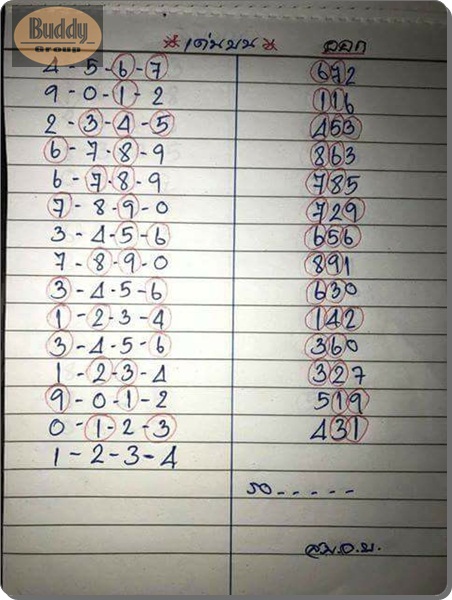 Buddy
Group
*เด่นบน* ออก
4-5-6-7 672
9-0-1-2 116
2-3-4-5 453
6-7-8-9 863
6-7-8-9 785
7-8-9-0 729
3-4-5-6 656
7-8-9-0 891
3-4-5-6 630
1-2-3-4 142
3-4-5-6 360
1-2-3-4 327
9-0-1-2 519
0-1-2-3 431
1-2-3-4
รอ-----